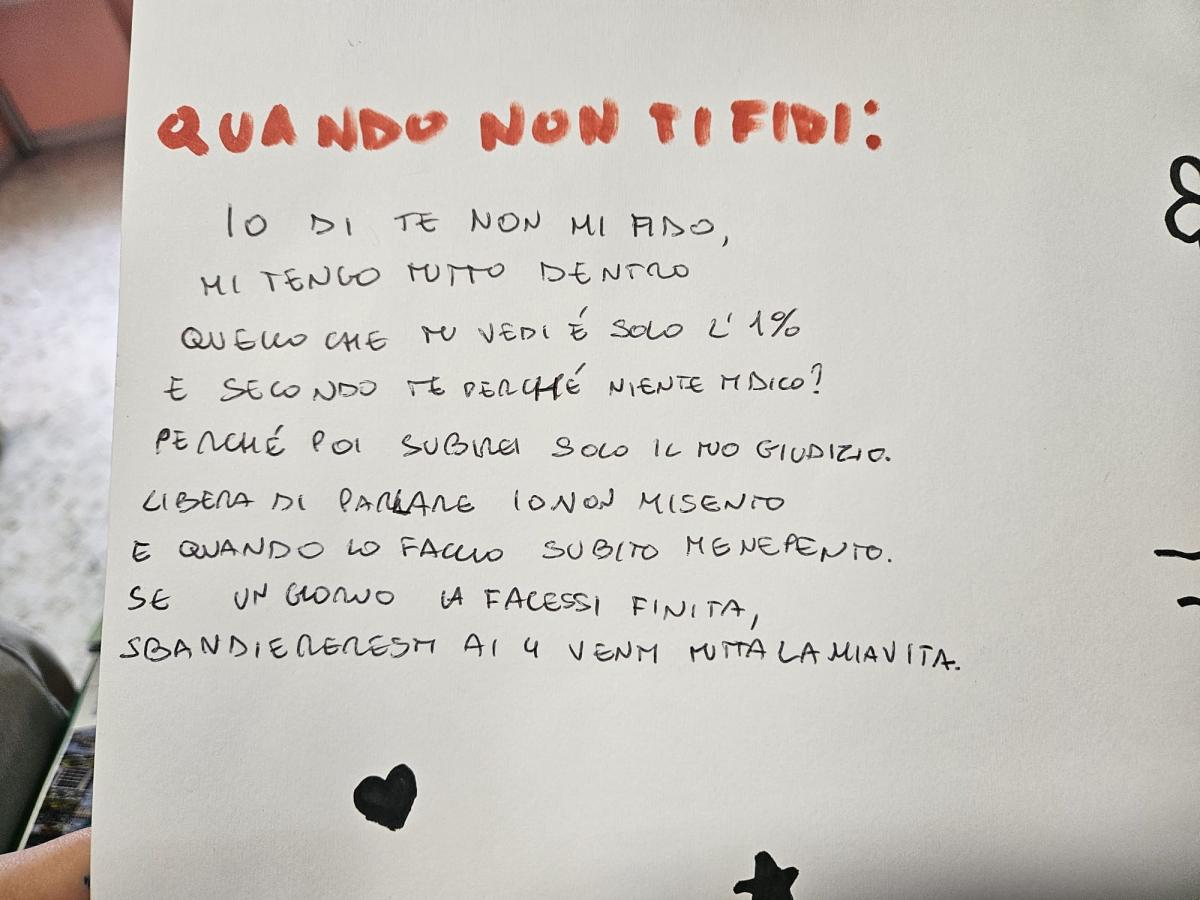 QUANDO NON TI FIDI:
IO DI TE NON MI FIDO,
MI TENGO TUTTO DENTRO
QUELLO CHE TU VEDI É SOLO L' 1%
E SECONDO TE PERCHÉ NIENTE TI DICO?
PERCHÉ POI SUBIREI SOLO IL TUO GIUDIZIO.
LIBERA DI PARLARE IO NON MI SENTO
E QUANDO LO FACCIO SUBITO ME NE PENTO.
SE UN GIORNO LA FACESSI FINITA,
SBANDIERERESTI AI 4 VENTI TUTTA LA MIA VITA.